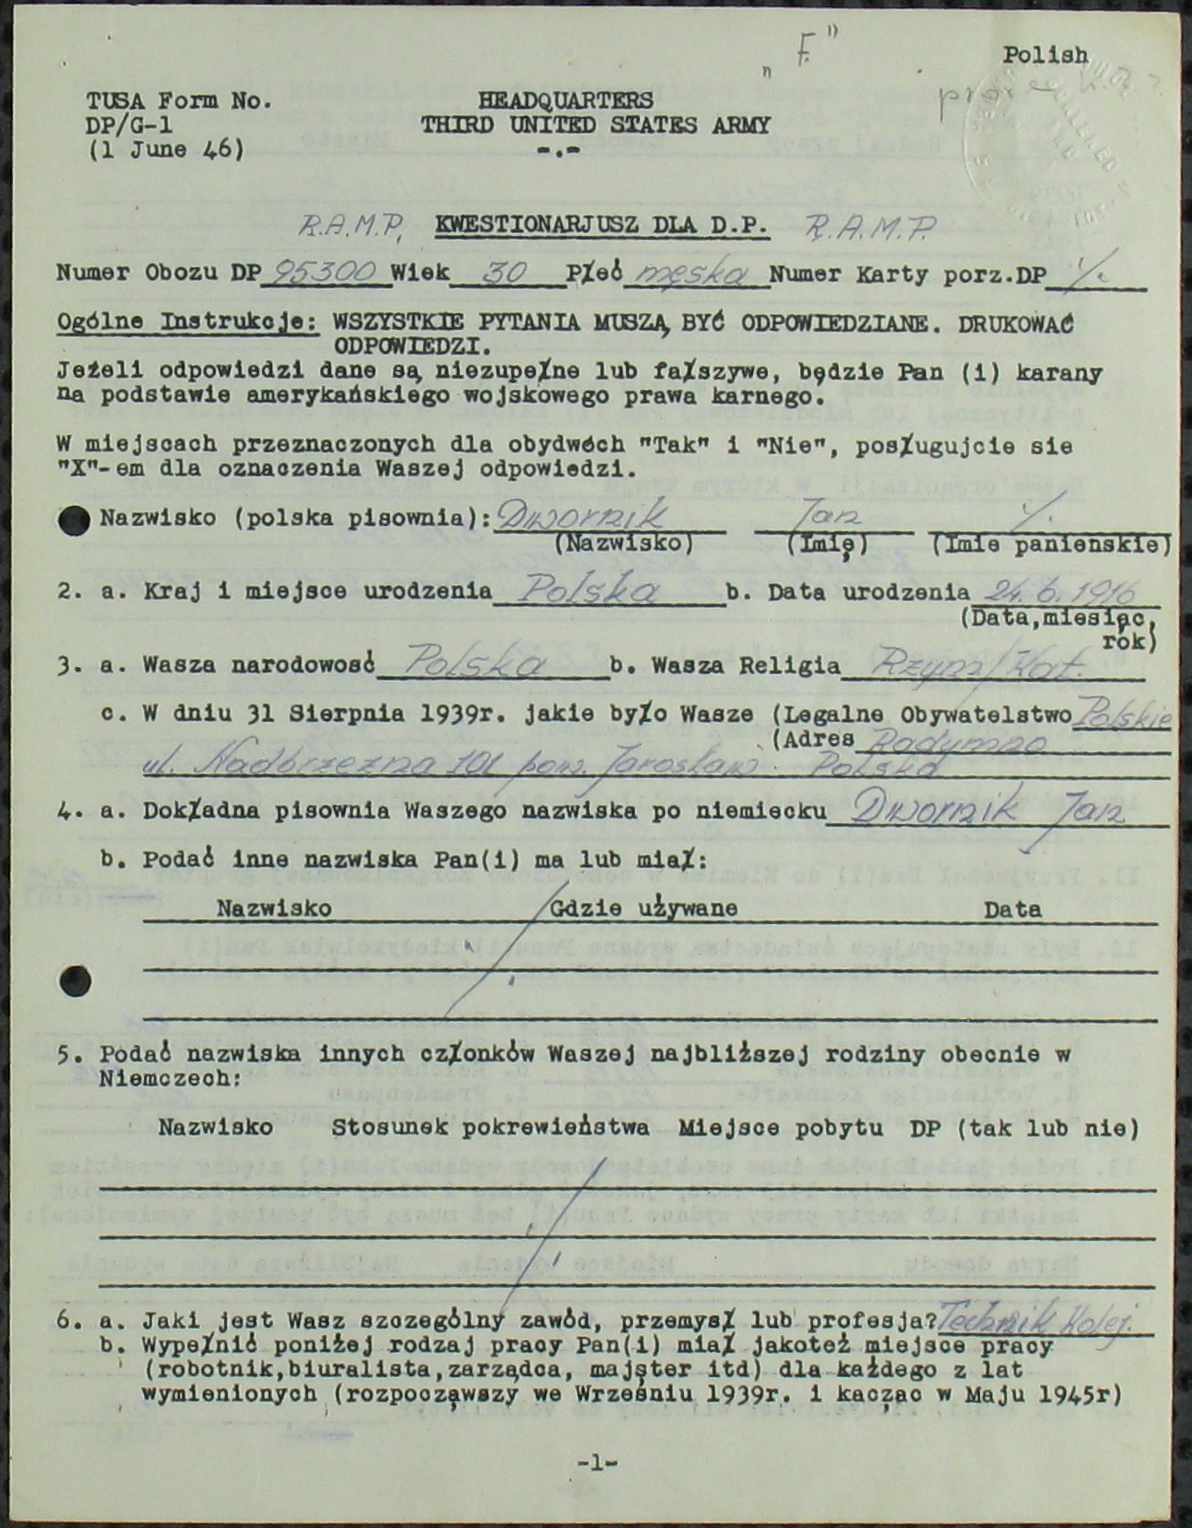 „F."
Polish
TUSA Form No.
DP/G-1
(1 June 46)
HEADQUARTERS
THIRD UNITED STATES ARMY
-.-
R.A.M.P. KWESTIONARJUSZ DLA D.P. R.A.M.P.
Numer Obozu DP 95300 Wiek 30 Płeć męska Numer Karty porz.DP ./.
Ogólne Instrukcje: WSZYSTKIE PYTANIA MUSZĄ BYĆ ODPOWIEDZIANE. DRUKOWAĆ
ODPOWIEDZI.
Jeżeli odpowiedzi dane są niezupełne lub fałszywe, będzie Pan (i) karany
na podstawie amerykańskiego wojskowego prawa karnego.
W miejscach przeznaczonych dla obydwóch "Tak" i "Nie", posługujcie sie
"X"-em dla oznaczenia Waszej odpowiedzi.
Nazwisko (polska pisownia): Dwornik Jan ./.
(Nazwisko) (Imię) (Imie panienskie)
2. a. Kraj i miejsce urodzenia Polska b. Data urodzenia 24.6.1916
(Data,miesiąc,
rok)
3. a. Wasza narodowosć Polska b. Wasza Religia Rzym/Kat.
c. W dniu 31 Sierpnia 1939r. jakie było Wasze (Legalne Obywatelstwo Polskie
(Adres Radymno
ul. Nadbrzezna 101 pow. Jarosław. Polska
4. a. Dokładna pisownia Waszego nazwiska po niemiecku Dwornik Jan
b. Podać inne nazwiska Pan(i) ma lub miał:
Nazwisko Gdzie używane Data
./.
5. Podać nazwiska innych członków Waszej najbliższej rodziny obecnie w
Niemczech:
Nazwisko Stosunek pokrewieństwa Miejsce pobytu DP (tak lub nie)
./.
6. a. Jaki jest Wasz szczególny zawód, przemysł lub profesja? Technik Kolej.
b. Wypełnić poniżej rodzaj pracy Pan(i) miał jakoteż miejsce pracy
(robotnik,biuralista,zarządca, majster itd) dla każdego z lat
wymienionych (rozpocząwszy we Wrześniu 1939r. i kacząc w Maju 1945r)
-1-